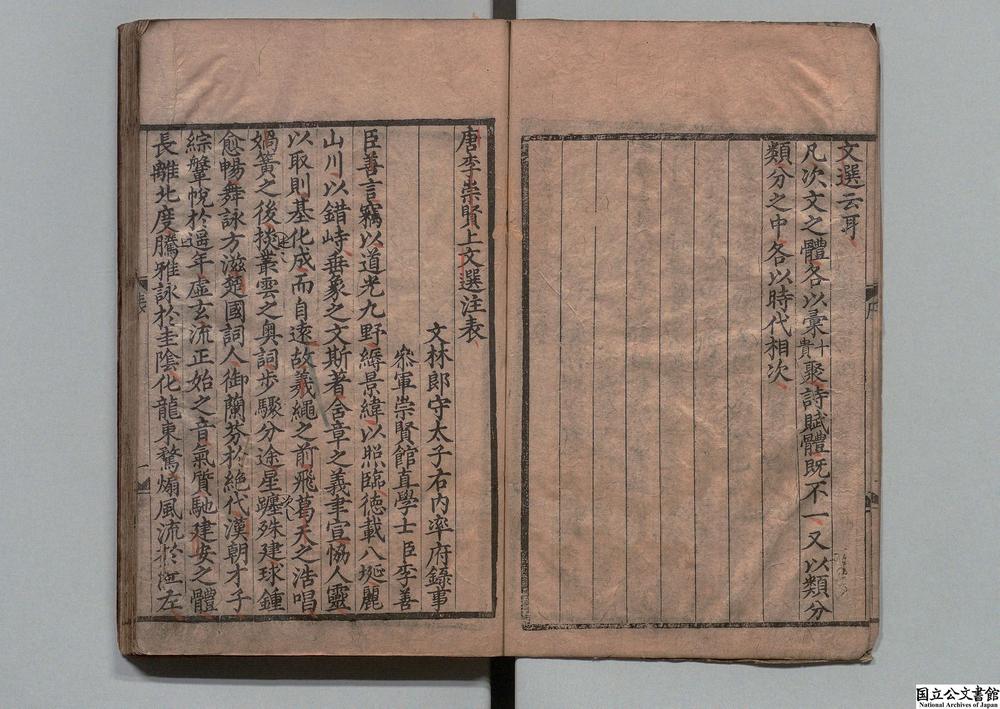 文選云耳
凡次文之體各以彙十貴聚詩賦體既不一又以類分
類分之中各以時代相次
序
唐李崇賢上文選注表
文林郎守太子右內率府錄事
叅軍崇賢館直學士臣李善
臣善言竊以道光九野縟景緯以照臨德載八埏麗
山川以錯峙垂象之文斯著含章之義聿宣恊人靈
以取則基化成而自遠故羲繩之前飛葛天之浩唱
媧簧之後掞叢雲之奥詞步驟分途星躔殊建球鍾
愈暢舞詠方滋楚國詞人御蘭芬於絕代漢朝才子
綜鞶帨於遥年虛玄流正始之音氣質馳建安之體
長離北度騰雅詠於圭陰化龍東騖煽風流於江左
表
一
国立公文書館
National Archives of Japan